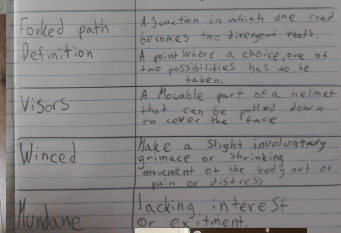 Forked path
Definition
A junction in which one road
becomes two divergent roads.
A point where a choice, one of
two possibilities has to be
taken.
Visors
A Movable part of a helmet
that can be pulled down
to cover the face
Winced
Make a slight involuntary
grimace or shrinking
movement of the body out of
pain or distress
Mundane
lacking interest
or exitment.